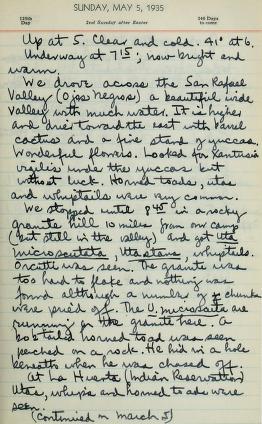 SUNDAY, MAY 5, 1935
125th Day
2nd Sunday after Easter
240 Days to come
Up at 5. Clear and cold. 41° at 6.
Underway at 7 15; now bright and
warm.
We drove across the San Rafael
Valley (Ojos Negros) a beautiful wide
valley with much water. It is higher
and drier toward the east with barrel
cactus and a fine stand of yuccas.
Wonderful flowers. Looked for Xantusia
vigilis under the yuccas but
without luck. Horned toads, utas
and whiptails were very common.
We stopped until 8 45 in a rocky
granite hill 10 miles from our camp
(but still in the valley) and got Uta
microscutata, Uta stans., whiptails.
Orcutti was seen. The granite was
too hard to flake and nothing was
found although a number of chunks
were pried off. The U. microscutata are
running on the granite here. A
bobtailed horned toad was seen
perched on a rock. He hid in a hole
beneath when he was chased off.
At La Huerta (Indian Reservation)
Utas, whips and horned toads were
seen.
(continued on March 5)